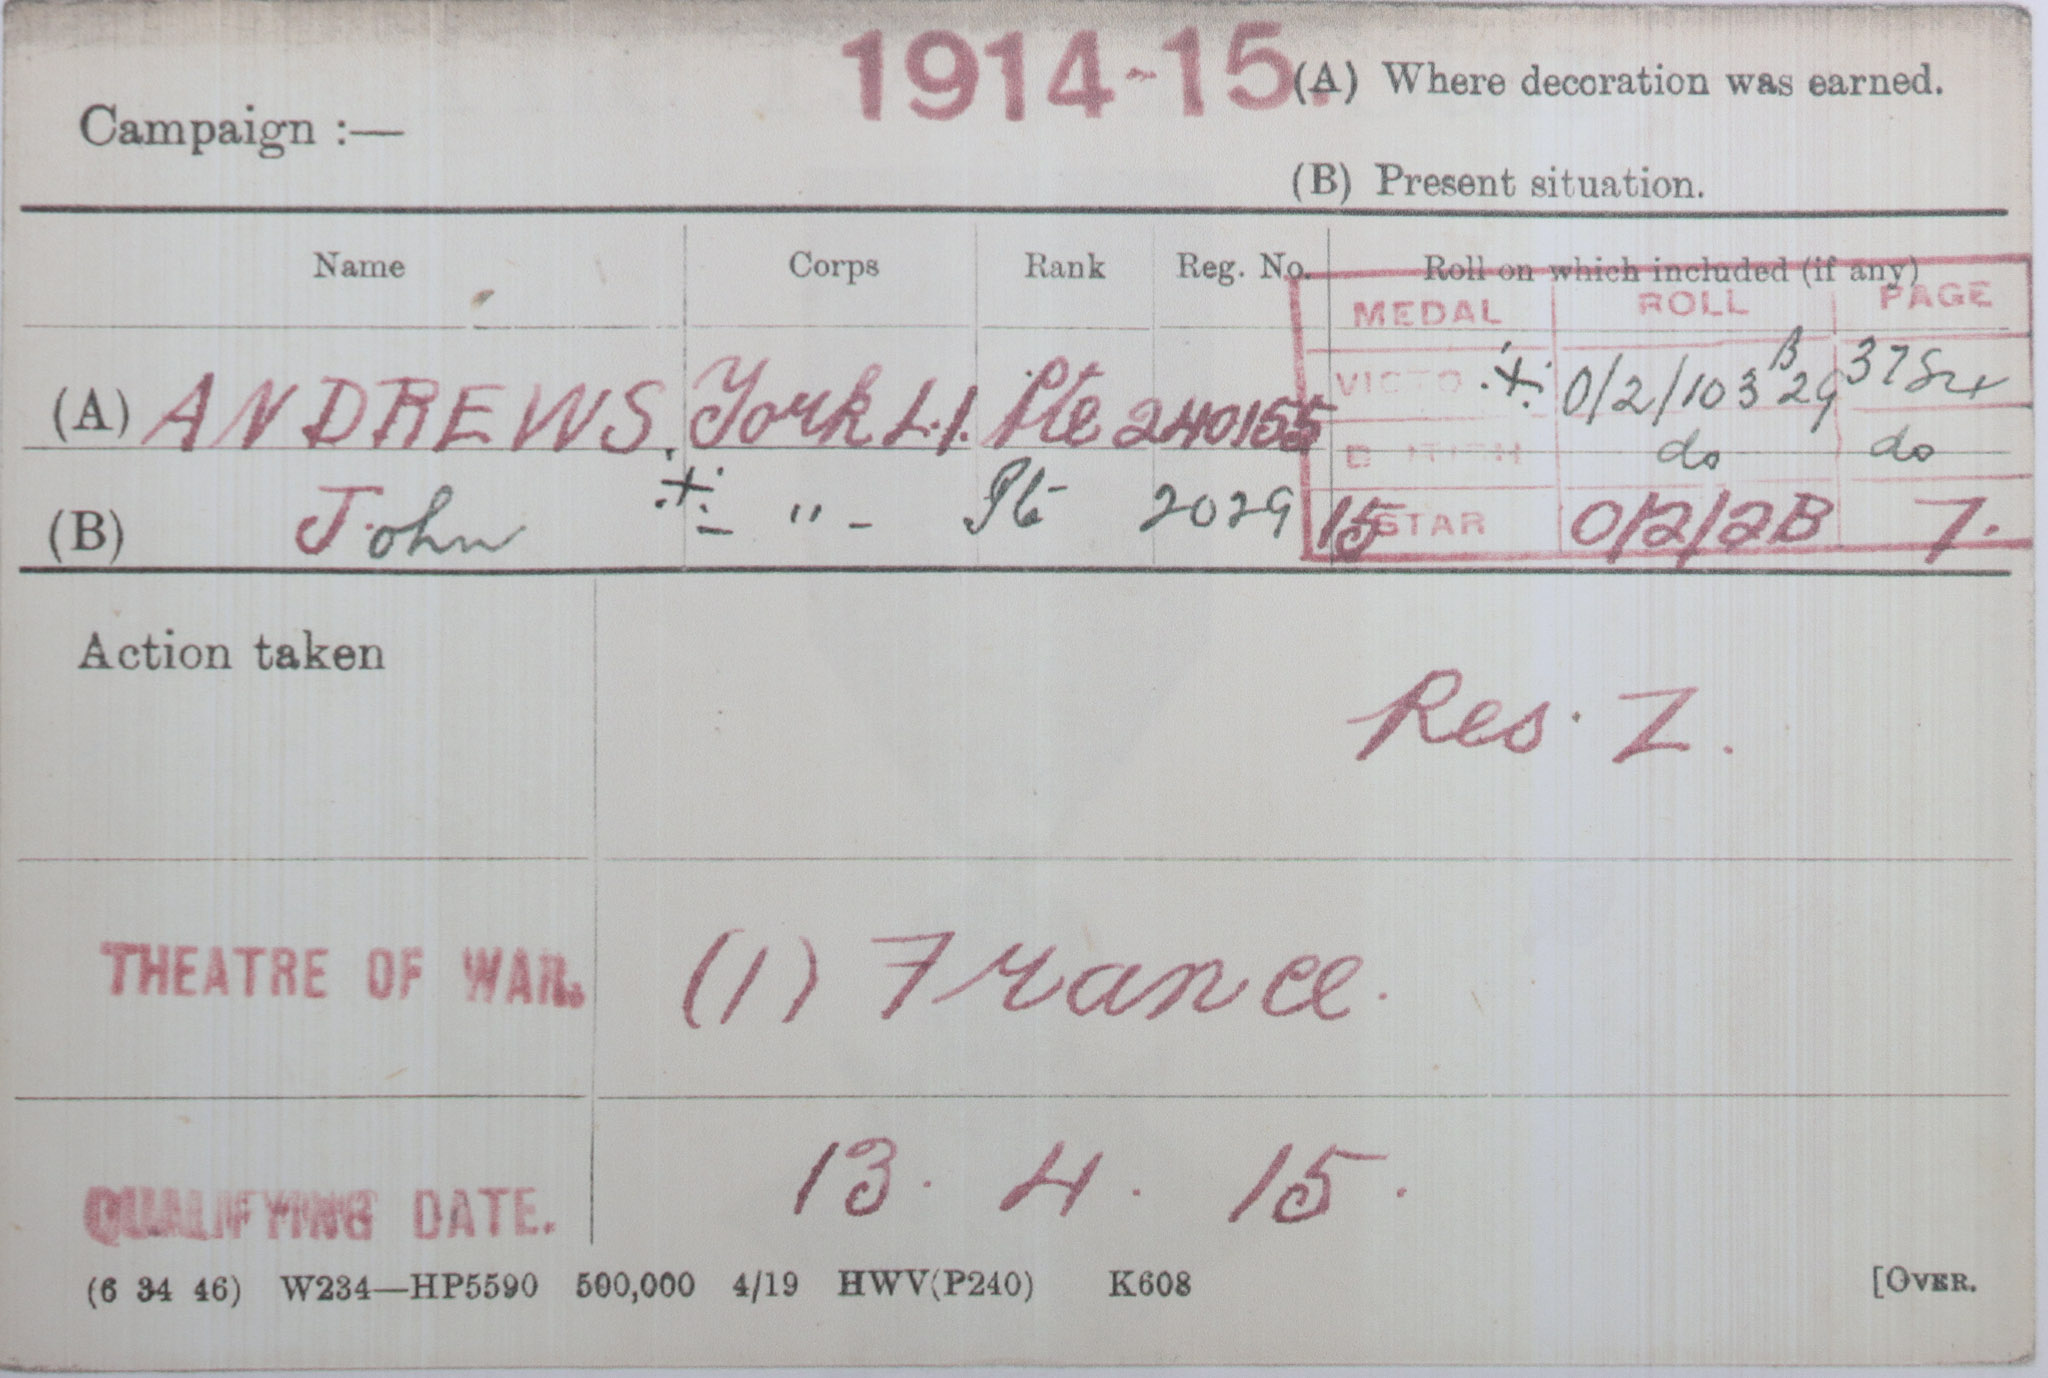 1914-15.
(A) Where decoration was earned.
Campaign :—
(B) Present situation.
Name Corps Rank Reg. No. Roll on which included (if any)
MEDAL ROLL PAGE
(A) ANDREWS. York L.I. Pte 240155 VICTO 0/2/103 B 29
do do
(B) John " Pte 2029 15 STAR 0/2/2B 7.
Action taken
Res. Z.
THEATRE OF WAR. (1) France.
QUALIFYING DATE. 13. 4. 15.
(6 34 46) W234—HP5590 500,000 4/19 HWV(P240) K608 [OVER.